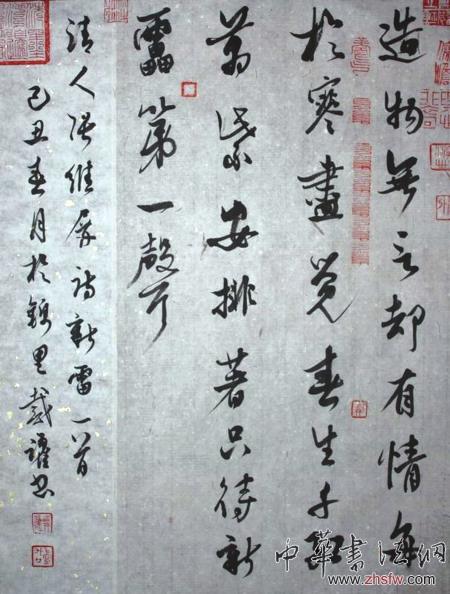 造物無言却有情每
於寒盡覺春生千紅
萬紫安排著只待新
雷第一聲
清人張維屏詩新雷一首
己丑春月於錦里戴書
中華書法網
www.zhsfw.com